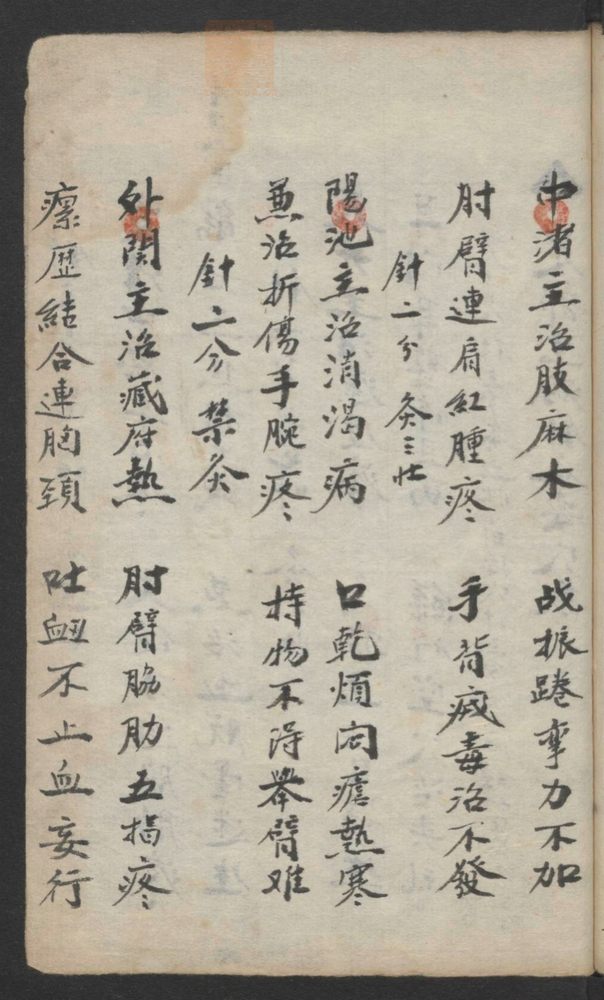 中渚主治肢麻木 战振踡挛力不加
肘臂連肩紅腫疼 手背瘊毒治不發
針二分 灸三壯
陽池主治消渴病 口乾煩悶瘧熱寒
兼治折傷手腕疼 持物不得举臂难
針二分 禁灸
外関主治臓府熱 肘臂脇肋五指疼
瘰歷結合連胸頚 吐衂不止血妄行